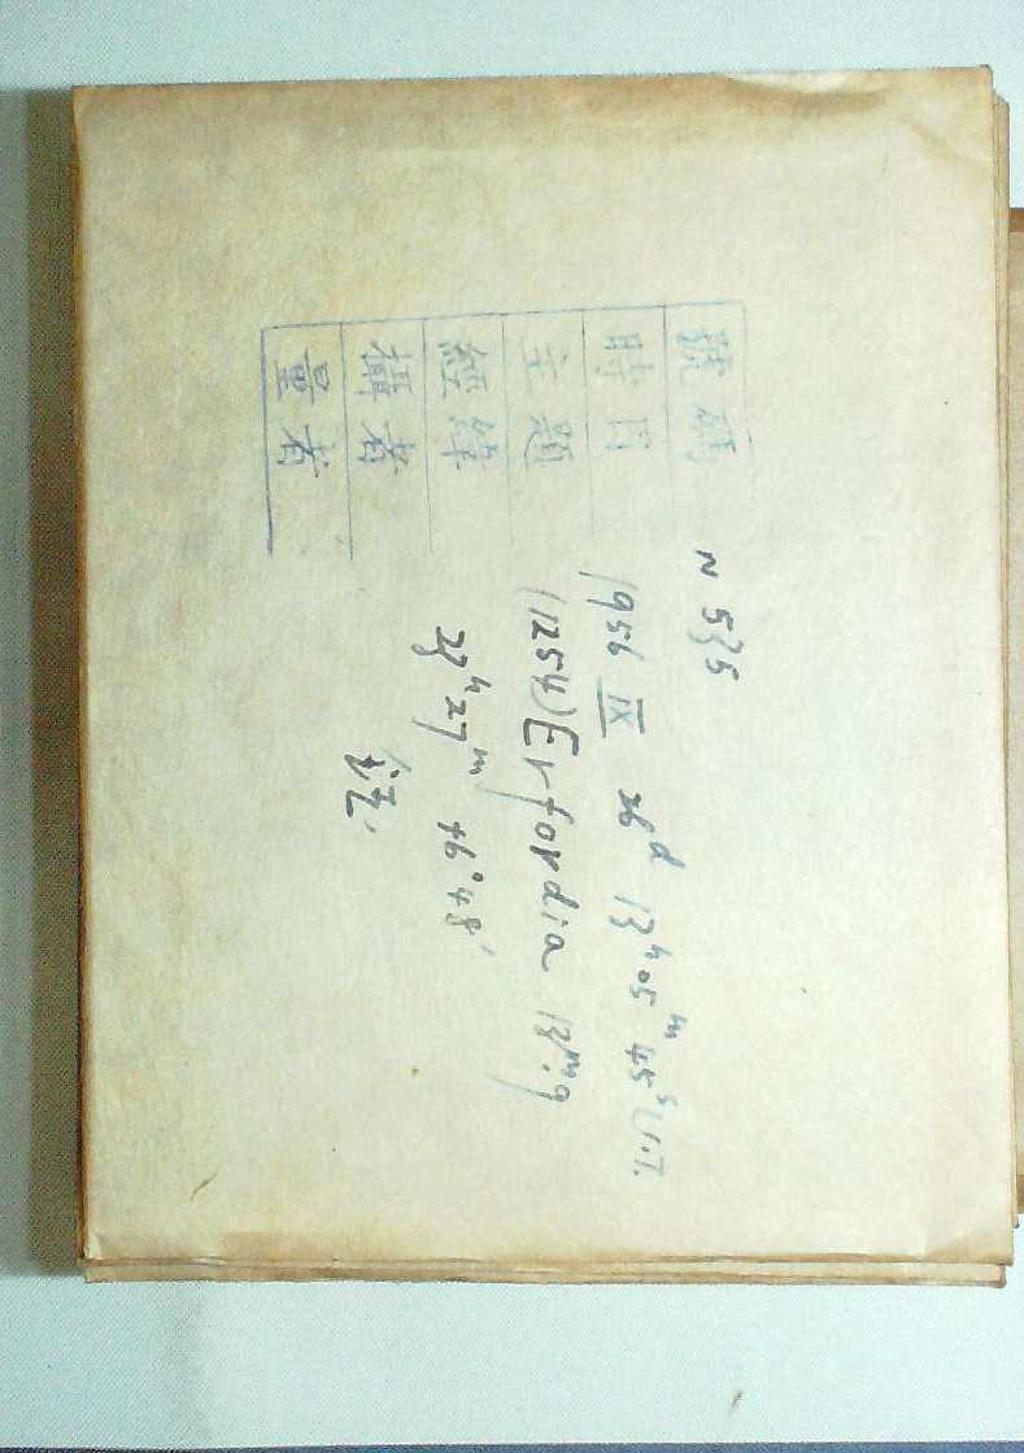 號碼 N 535
時間 1956 IX 26ᵈ 13ʰ05ᵐ45ˢ U.T.
主題 (1254) Erfordia 13ᵐ.9
經緯 23ʰ27ᵐ +6°48′
攝者
量者